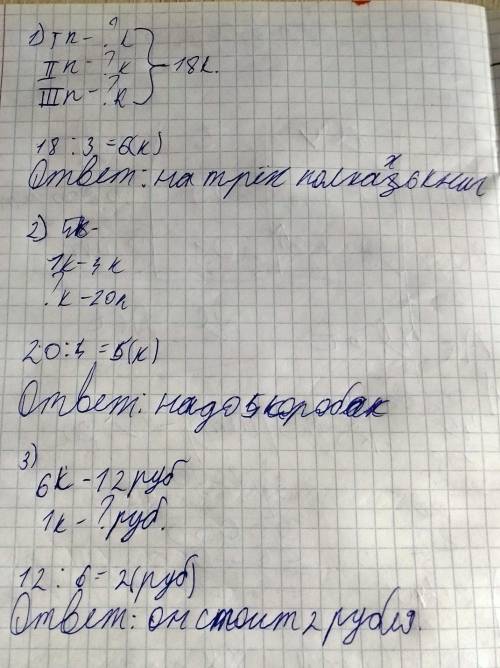 1) I п - ? к
II п - ? к } - 18 к.
III п - ? к
18 : 3 = 6(к)
Ответ: на трёх полках 6 книг
2)
1к - 4 к
? к - 20 п
20 : 4 = 5(к)
Ответ: надо 5 коробок
3)
6к - 12 руб
1к - ? руб.
12 : 6 = 2(руб)
Ответ: он стоит 2 рубля.